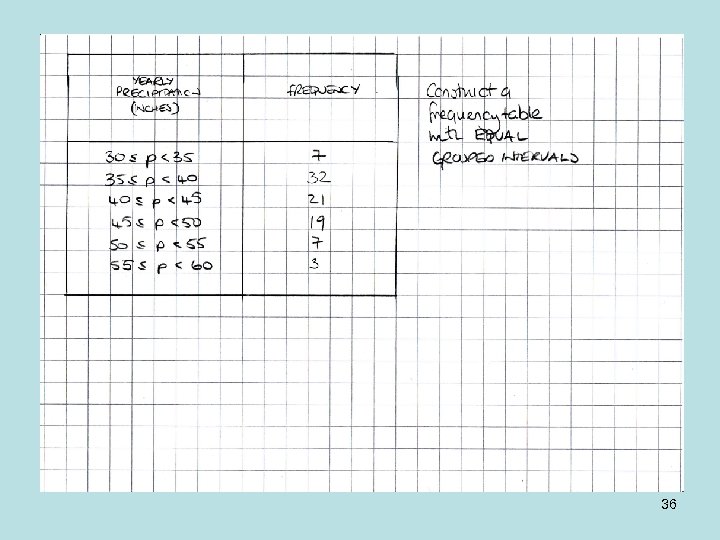 YEARLY
PRECIPITATION
(INCHES)
FREQUENCY
30 ≤ p < 35 7
35 ≤ p < 40 32
40 ≤ p < 45 21
45 ≤ p < 50 19
50 ≤ p < 55 7
55 ≤ p < 60 3
Construct a
frequency table
with EQUAL
GROUPED INTERVALS
36